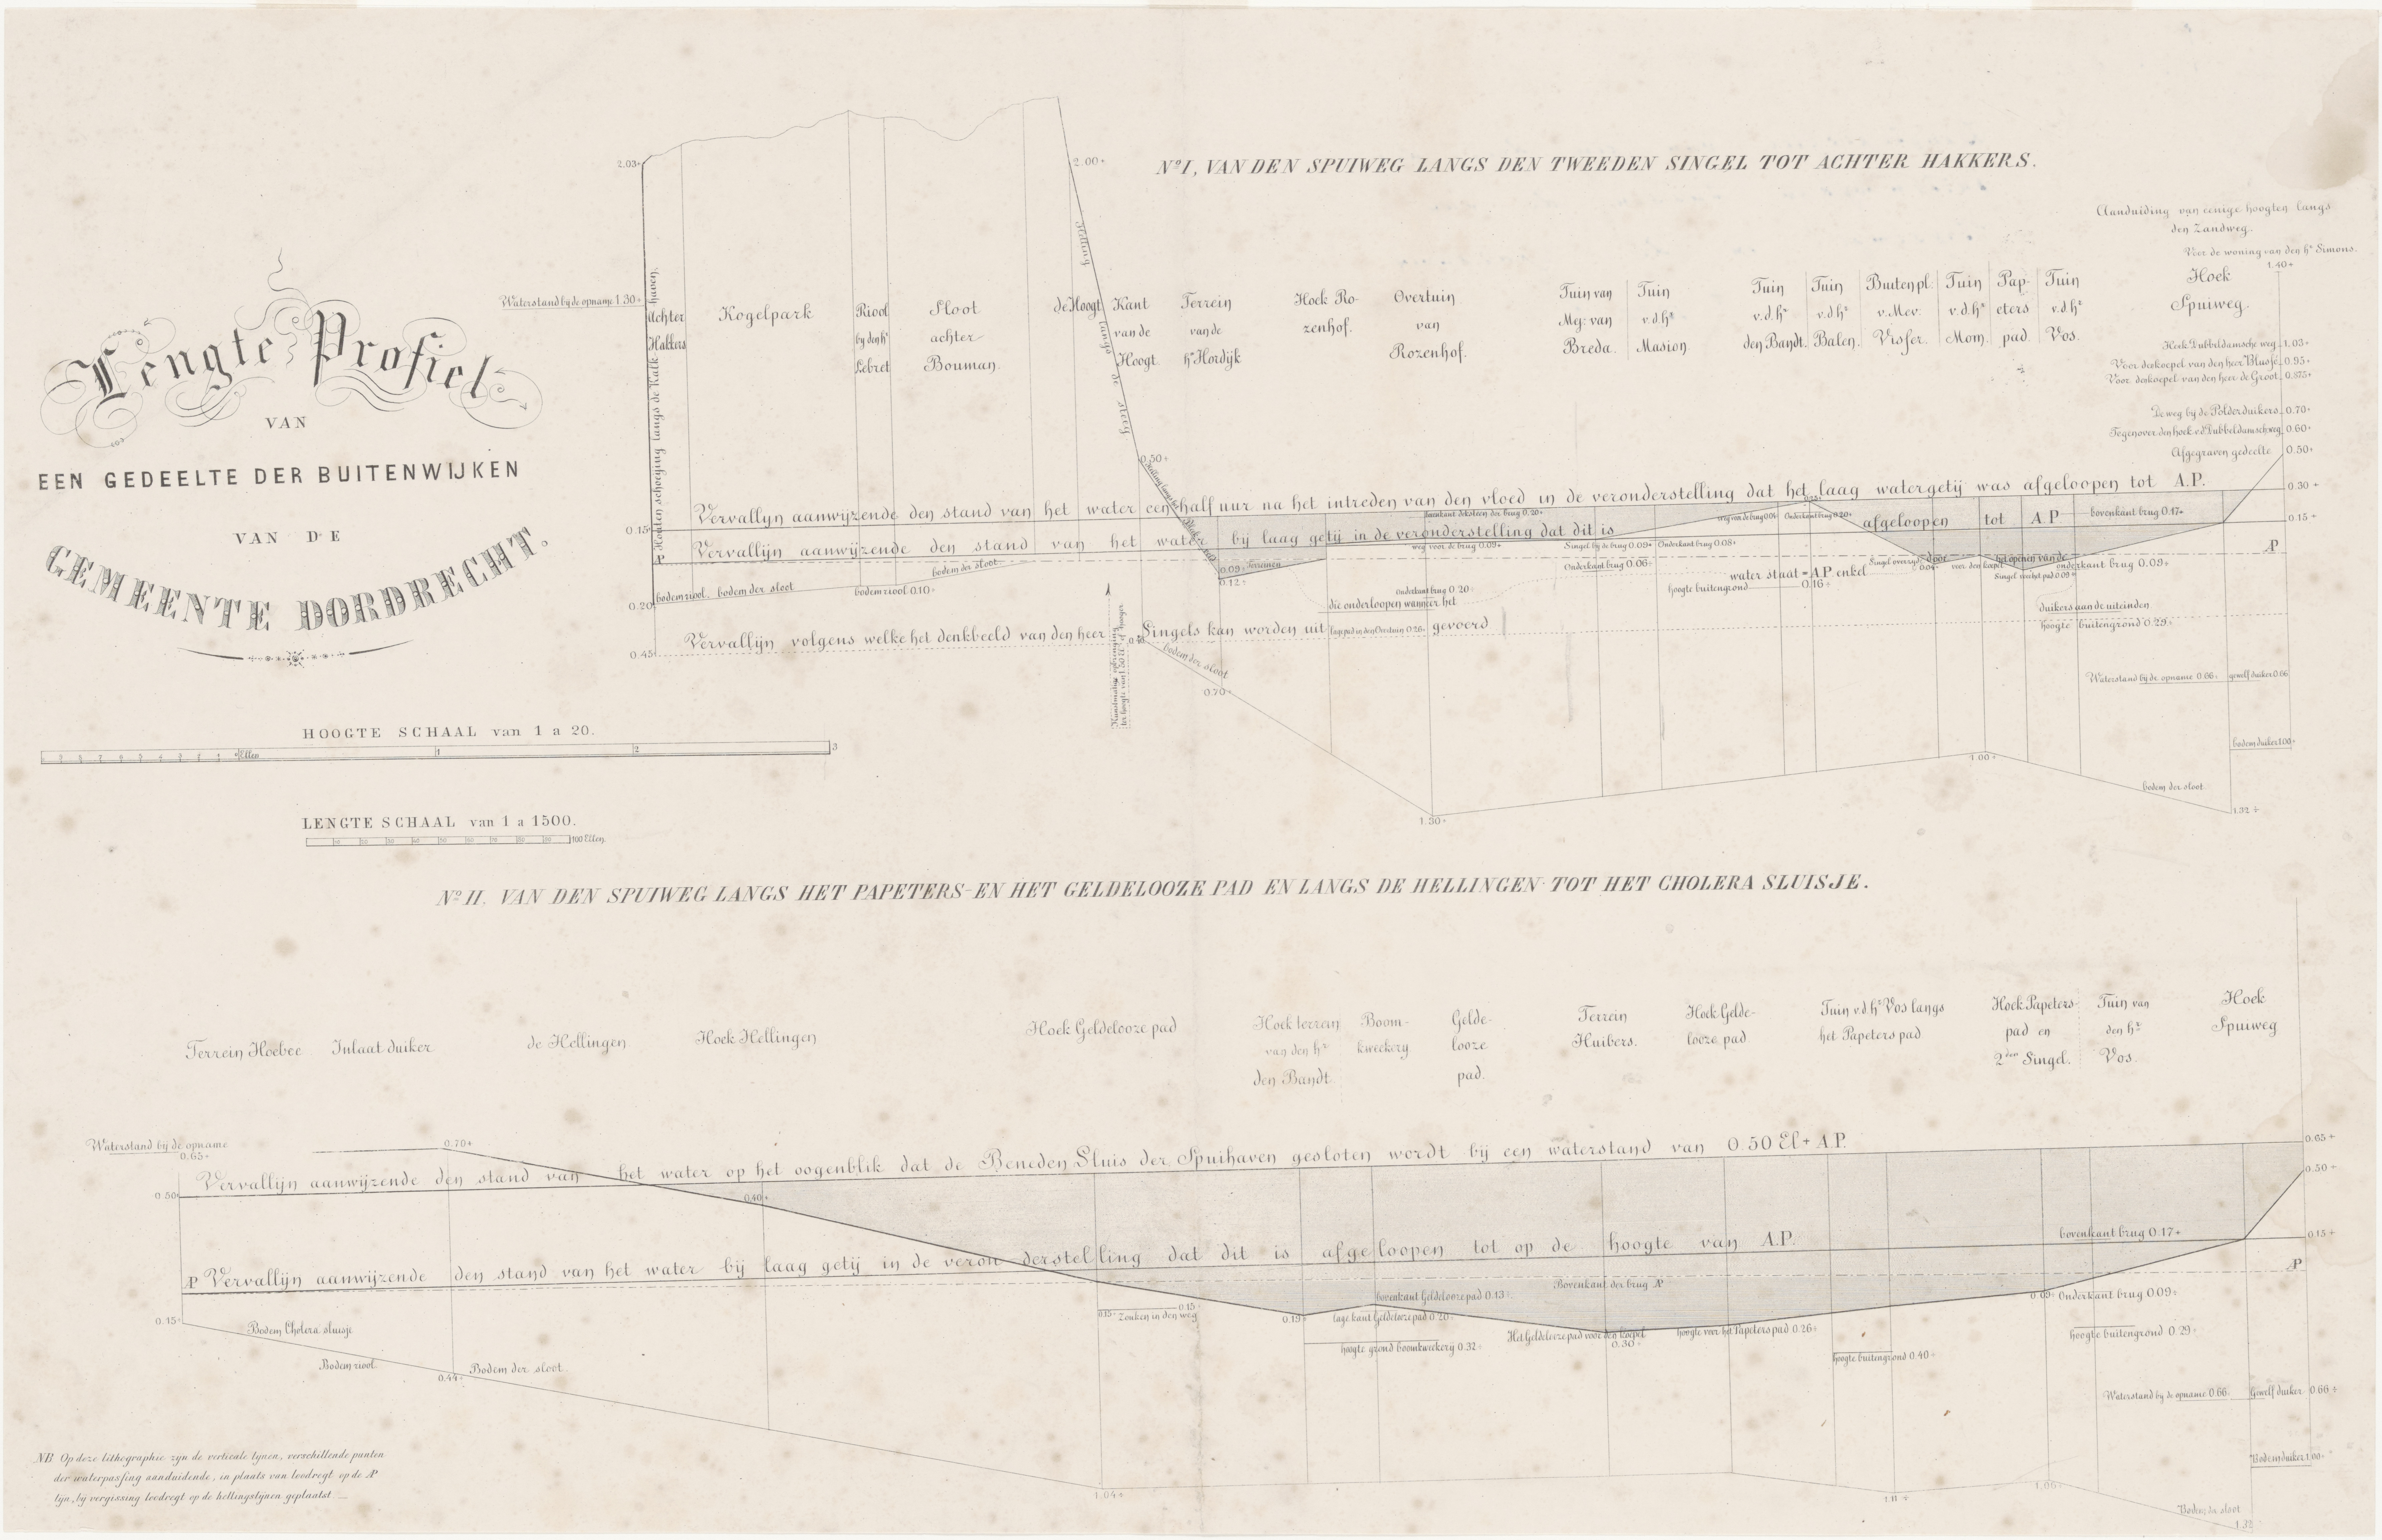 Lengte Profiel
VAN
EEN GEDEELTE DER BUITENWIJKEN
VAN DE
GEMEENTE DORDRECHT.
HOOGTE SCHAAL van 1 a 20.
Ellen 1 2 3
LENGTE SCHAAL van 1 a 1500.
100 Ellen.
Nº I, VAN DEN SPUIWEG LANGS DEN TWEEDEN SINGEL TOT ACHTER HAKKERS.
2.03+
2.00+
Waterstand by de opname 1.30+
Houten schoeiing langs de Kalk haven.
Achter
Hakkers
Kogelpark
Riool
by den hr
Lebret
Sloot
achter
Bouman.
de Hoogt
Helling langs de steeg
Kant
van de
Hoogt.
Terrein
van de
hr Hordijk
Hoek Ro-
zenhof.
Overtuin
van
Rozenhof.
Tuin van
Mej: van
Breda.
Tuin
v.d.hr
Masion.
Tuin
v.d.hr
den Bandt.
Tuin
v.d.hr
Balen.
Buitenpl.
v.Mev.
Visser.
Tuin
v.d.hr
Mom.
Pap-
eters
pad.
Tuin
v.d.hr
Vos.
Aanduiding van eenige hoogten langs
den Zandweg.
Voor de woning van den hr Simons.
1.40+
Hoek
Spuiweg.
Hoek Dubbeldamsche weg 1.03+
Voor de koepel van den heer Blussé 0.95+
Voor de koepel van den heer de Groot 0.875+
De weg bij de Polderduikers 0.70+
Tegenover den hoek v.d Dubbeldamschweg 0.60+
Afgegraven gedeelte 0.50+
0.50+
Vervallyn aanwyzende den stand van het water een half uur na het intreden van den vloed in de veronderstelling dat het laag watergetij was afgeloopen tot A.P.
0.30+
0.15
Vervallijn aanwijzende den stand van het water bij laag getij in de veronderstelling dat dit is afgeloopen tot A.P
bovenkant brug 0.17+
0.15+
AP
AP
bovenkant deksteen der brug 0.20+
weg voor de brug 0.09+
Singel bij de brug 0.09+
Onderkant brug 0.08+
Onderkant brug 0.20+
0.09÷ Terreinen
0.12÷
Onderkant brug 0.06÷
water staat = A.P. enkel door het openen van de
hoogte buitengrond 0.16÷
voor den koepel
Onderkant brug 0.09÷
0.20
bodem riool.
bodem der sloot
bodem riool 0.10÷
bodem der sloot
Onderkant brug 0.20÷
die onderloopen wanneer het
duikers aan de uiteinden
hoogte buitengrond 0.29÷
0.45
Vervallijn volgens welke het denkbeeld van den heer Singels kan worden uit gevoerd
lage pad in den Overtuin 0.26÷
bodem der sloot
0.70÷
Waterstand bij de opname 0.66÷
gewelf duiker 0.66
bodem duiker 1.00÷
1.00÷
bodem der sloot
1.30÷
1.32÷
Nº II. VAN DEN SPUIWEG LANGS HET PAPETERS- EN HET GELDELOOZE PAD EN LANGS DE HELLINGEN TOT HET CHOLERA SLUISJE.
Terrein Hoebee
Inlaat duiker
de Hellingen
Hoek Hellingen
Hoek Geldelooze pad
Hoek terrein
van den hr
den Bandt.
Boom-
kweekery
Gelde-
looze
pad.
Terrein
Huibers.
Hoek Gelde-
looze pad.
Tuin v.d.hr Vos langs
het Papeters pad
Hoek Papeters-
pad en
2den Singel.
Tuin van
den hr
Vos.
Hoek
Spuiweg
Waterstand bij de opname
0.65+
0.70+
0.65+
Vervallijn aanwijzende den stand van het water op het oogenblik dat de Beneden Sluis der Spuihaven gesloten wordt bij een waterstand van 0.50 El+ A.P.
0.50
0.50+
0.40+
bovenkant brug 0.17+
0.15+
AP Vervallijn aanwijzende den stand van het water bij laag getij in de veronderstelling dat dit is afgeloopen tot op de hoogte van A.P.
AP
Bovenkant der brug AP
bovenkant Geldelooze pad 0.13÷
0.09÷ Onderkant brug 0.09÷
0.15÷
0.15÷ Zonken in den weg 0.15
0.19÷
lage kant Geldelooze pad 0.20÷
Het Geldelooze pad voor den koepel
0.30÷
hoogte voor het Papeters pad 0.26÷
hoogte grond boomkweekerij 0.32÷
hoogte buitengrond 0.29÷
hoogte buitengrond 0.40÷
Bodem Cholera sluisje
Bodem riool
0.44÷
Bodem der sloot
Waterstand bij de opname 0.66
Gewelf duiker 0.66÷
Bodem duiker 1.00÷
1.04÷
1.11÷
1.06÷
Bodem der sloot
1.32
NB Op deze lithographie zyn de verticale lynen, verschillende punten
der waterpassing aanduidende, in plaats van loodregt op de AP
lijn, bij vergissing loodregt op de hellingslynen geplaatst.